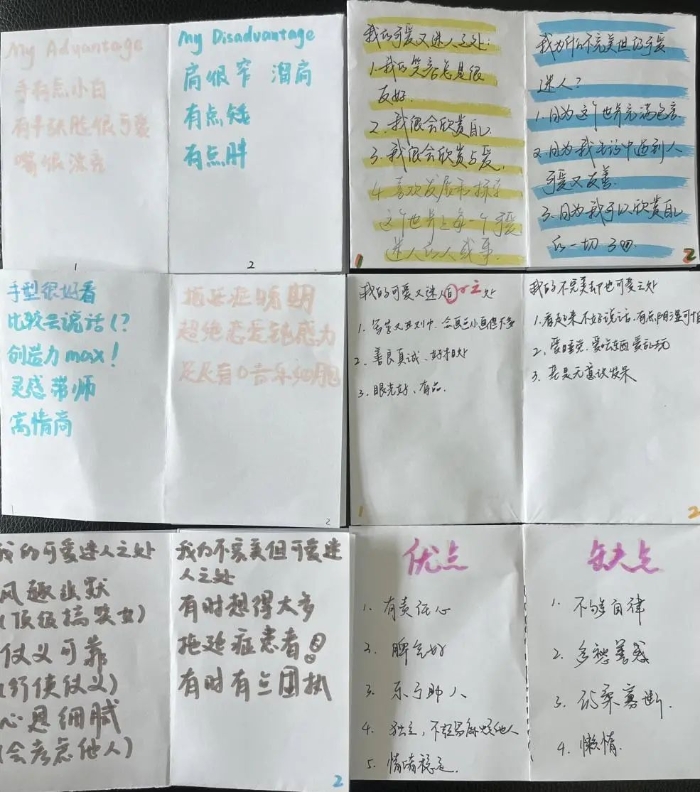 My Advantage
手有点小白
有手肤脸很可爱
嘴很漂亮
1
My Disadvantage
肩很窄 溜肩
有点矮
有点胖
2
我的可爱又迷人之处:
1.我的笑容总是很
友好.
2.我很会欣赏自己
3.我很会欣赏与爱.
4.喜欢发展和探索
这个世界上每一个可爱
迷人的人或事.
1
我为什么不完美但的可爱
迷人?
1.因为这个世界充满包容.
2.因为我生活中遇到人
可爱又友善.
3.因为我可以欣赏自己
的一切
2
手型很好看
比较会说话(?
创造力max!
灵感带师
高情商
1
拖延症晚期
超绝恋爱钝感力
是仅有0音乐细胞
2
我的可爱又迷人之处
2.善良真诚、好相处
3.眼光好、有品.
1
我的不完美却也可爱之处
2.爱睡觉、爱吃东西爱乱玩
3.老是元意识发呆
2
我的可爱迷人之处
风趣幽默
(顶级搞笑女)
仗义可靠
行侠仗义)
心思细腻
(会考虑他人)
我为不完美但可爱迷
人之处
有时想得太多
拖延症患者
有时有点固执
2
优点
1. 有责任心
2. 脾气好
3. 乐于助人
4. 独立,不轻易麻烦他人
5. 情绪稳定.
缺点
1. 不够自律
2. 多愁善感
3. 优柔寡断.
4. 懒惰.